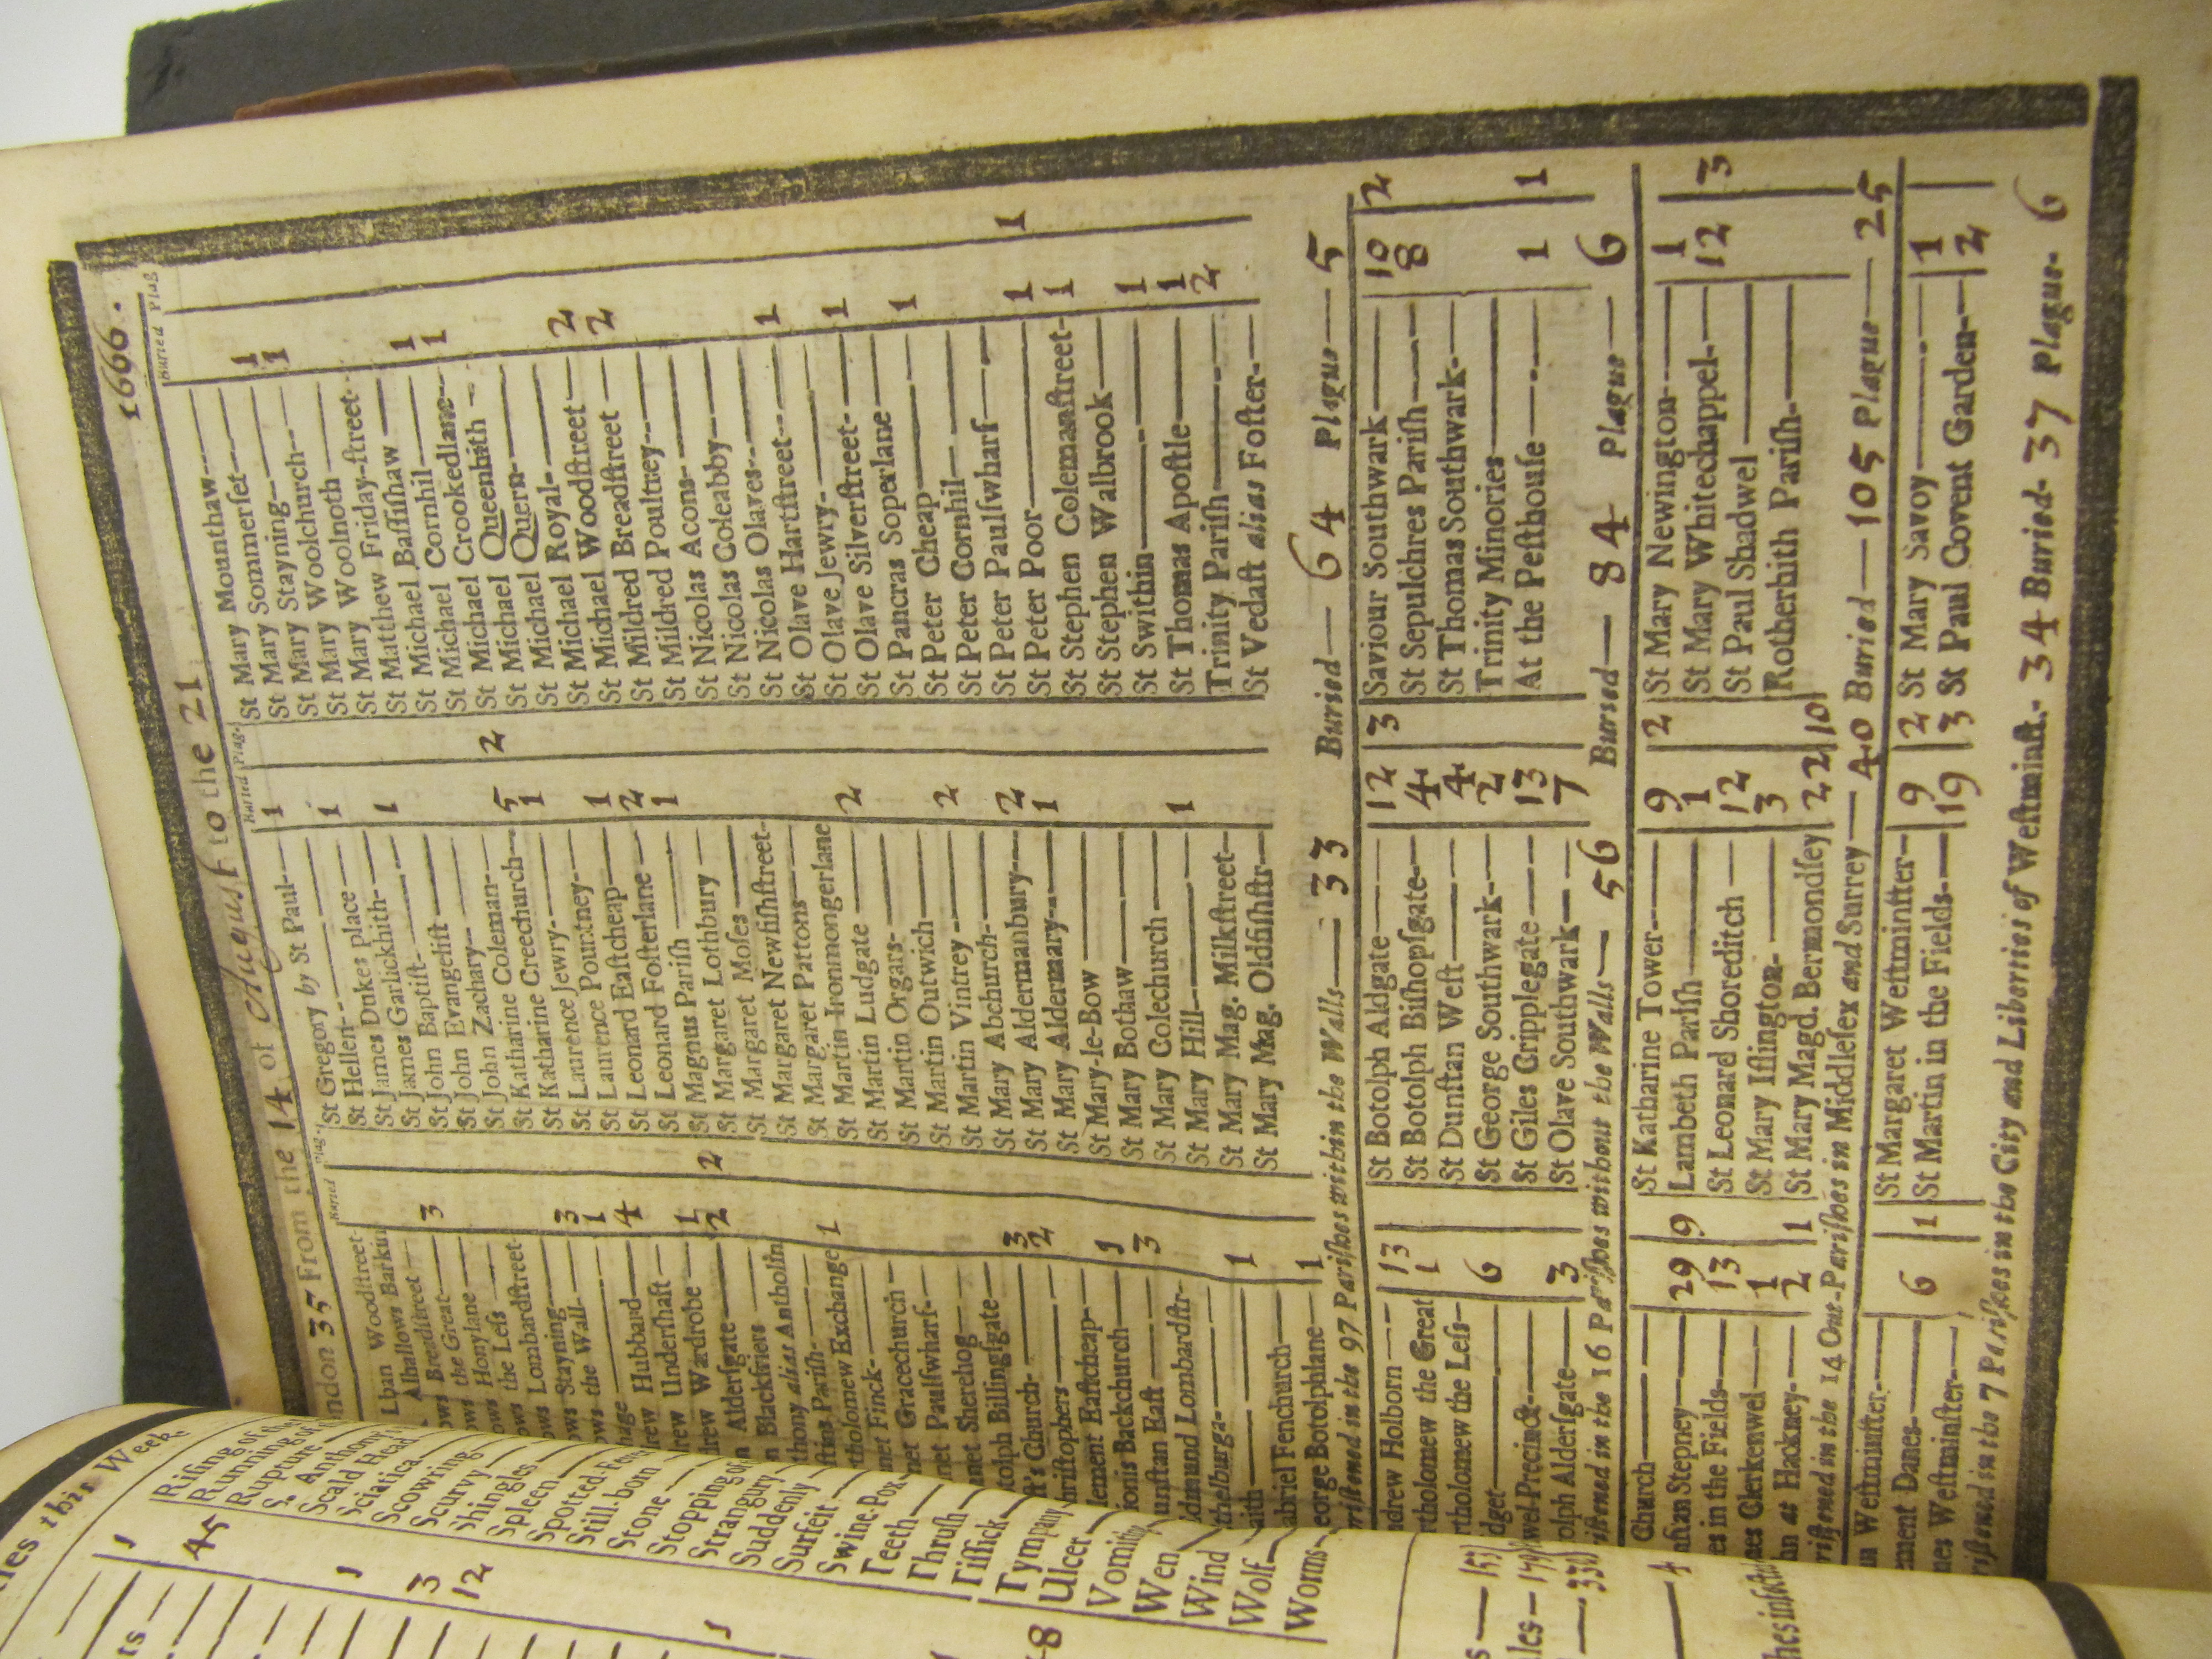 ndon 35 From the 14 of August to the 21 1666.
Buried Plag.
Buried Plag.
Buried Plag
lban Woodſtreet
Alhallows Barkin
Breadſtreet
ows the Great 3
ows Honylane
ows the Leſs
ows Lombardſtreet
ows Stayning
ows the Wall 3
1
rew Hubbard 4
rew Underſhaft
rew Wardrobe 1
n Alderſgate 2 2
n Blackfriers
thony alias Antholin
ſtins Pariſh
tholomew Exchange 1
net Finck
net Gracechurch
net Paulſwharf
net Sherehog
tolph Billingſgate
ſt's Church 3
riſtophers 2
lement Eaſtcheap
ionis Backchurch 1
unſtan Eaſt 3
dmund Lombardſtr
thelburga
aith 1
abriel Fenchurch
eorge Botolphlane 1
St Gregory by St Paul 1
St Hellen
St James Dukes place 1
St James Garlickhith
St John Baptiſt 1
St John Evangeliſt
St John Zachary
St Katharine Coleman
St Katharine Creechurch 5 2
St Laurence Jewry 1
St Laurence Pountney
St Leonard Eaſtcheap 1
St Leonard Foſterlane 2
St Magnus Pariſh 1
St Margaret Lothbury
St Margaret Moſes
St Margaret Newfiſhſtreet
St Margaret Pattons
St Martin Ironmongerlane
St Martin Ludgate 2
St Martin Orgars
St Martin Outwich
St Martin Vintrey 2
St Mary Abchurch
St Mary Aldermanbury 2
St Mary Aldermary 1
St Mary-le-Bow
St Mary Bothaw
St Mary Colechurch
St Mary Hill 1
St Mary Mag. Milkſtreet
St Mary Mag. Oldfiſhſtr
St Mary Mounthaw
St Mary Sommerſet 1
St Mary Stayning 1
St Mary Woolchurch
St Mary Woolnoth
St Mary Friday-ſtreet
St Matthew
St Michael Baſſiſhaw 1
St Michael Cornhil 1
St Michael Crookedlane
St Michael Queenhith
St Michael Quern
St Michael Royal
St Michael Woodſtreet 2
St Mildred Breadſtreet 2
St Mildred Poultrey
St Nicolas Acons
St Nicolas Coleabby
St Nicolas Olaves 1
St Olave Hartſtreet
St Olave Jewry 1
St Olave Silverſtreet
St Pancras Soperlane 1
St Peter Cheap
St Peter Cornhil
St Peter Paulſwharf
St Peter Poor 1 1
St Stephen Colemanſtreet 1
St Stephen Walbrook
St Swithin 1
St Thomas Apoſtle 1
Trinity Pariſh 2
St Vedaſt alias Foſter
riſtened in the 97 Pariſhes within the Walls 33 Buried 64 Plague 5
ndrew Holborn 13
tholomew the Great 1
rtholomew the Leſs
dget 6
wel Precinct
olph Alderſgate 3
St Botolph Aldgate 12 3
St Botolph Biſhopſgate 4
St Dunſtan Weſt 4
St George Southwark 2
St Giles Cripplegate 13
St Olave Southwark 7
Saviour Southwark 10 2
St Sepulchres Pariſh 8
St Thomas Southwark
Trinity Minories
At the Peſthouſe 1 1
iſtened in the 16 Pariſhes without the Walls 56 Buried 84 Plague 6
Church
nſtan Stepney 29 9
es in the Fields 13
es Clerkenwel 1
hn at Hackney 2 1
St Katharine Tower 9 2
Lambeth Pariſh 1
St Leonard Shoreditch 12
St Mary Iſlington 3
St Mary Magd. Bermondſey 22 10
St Mary Newington 1
St Mary Whitechappel 12 3
St Paul Shadwel
Rotherhith Pariſh
riſtened in the 14 Out-Pariſhes in Middleſex and Surrey 40 Buried 105 Plague 25
n Weſtminſter
ment Danes 6 1
nes Weſtminſter
St Margaret Weſtminſter 9 2
St Martin in the Fields 19 3
St Mary Savoy 1
St Paul Covent Garden 2
riſtened in the 7 Pariſhes in the City and Liberties of Weſtminſt. 34 Buried 37 Plague 6
this Week
1
45
1
3
12
1
8
Riſing of
Running of
Rupture
S. Anthony
Scald Head
Sciatica
Scowring
Scurvy
Shingles
Spleen
Spotted
Still-born
Stone
Stopping of
Strangury
Suddenly
Surfeit
Swine-Pox
Teeth
Thruſh
Tiſſick
Tympany
Ulcer
Vomiting
Wen
Wind
Wolf
Worms
4